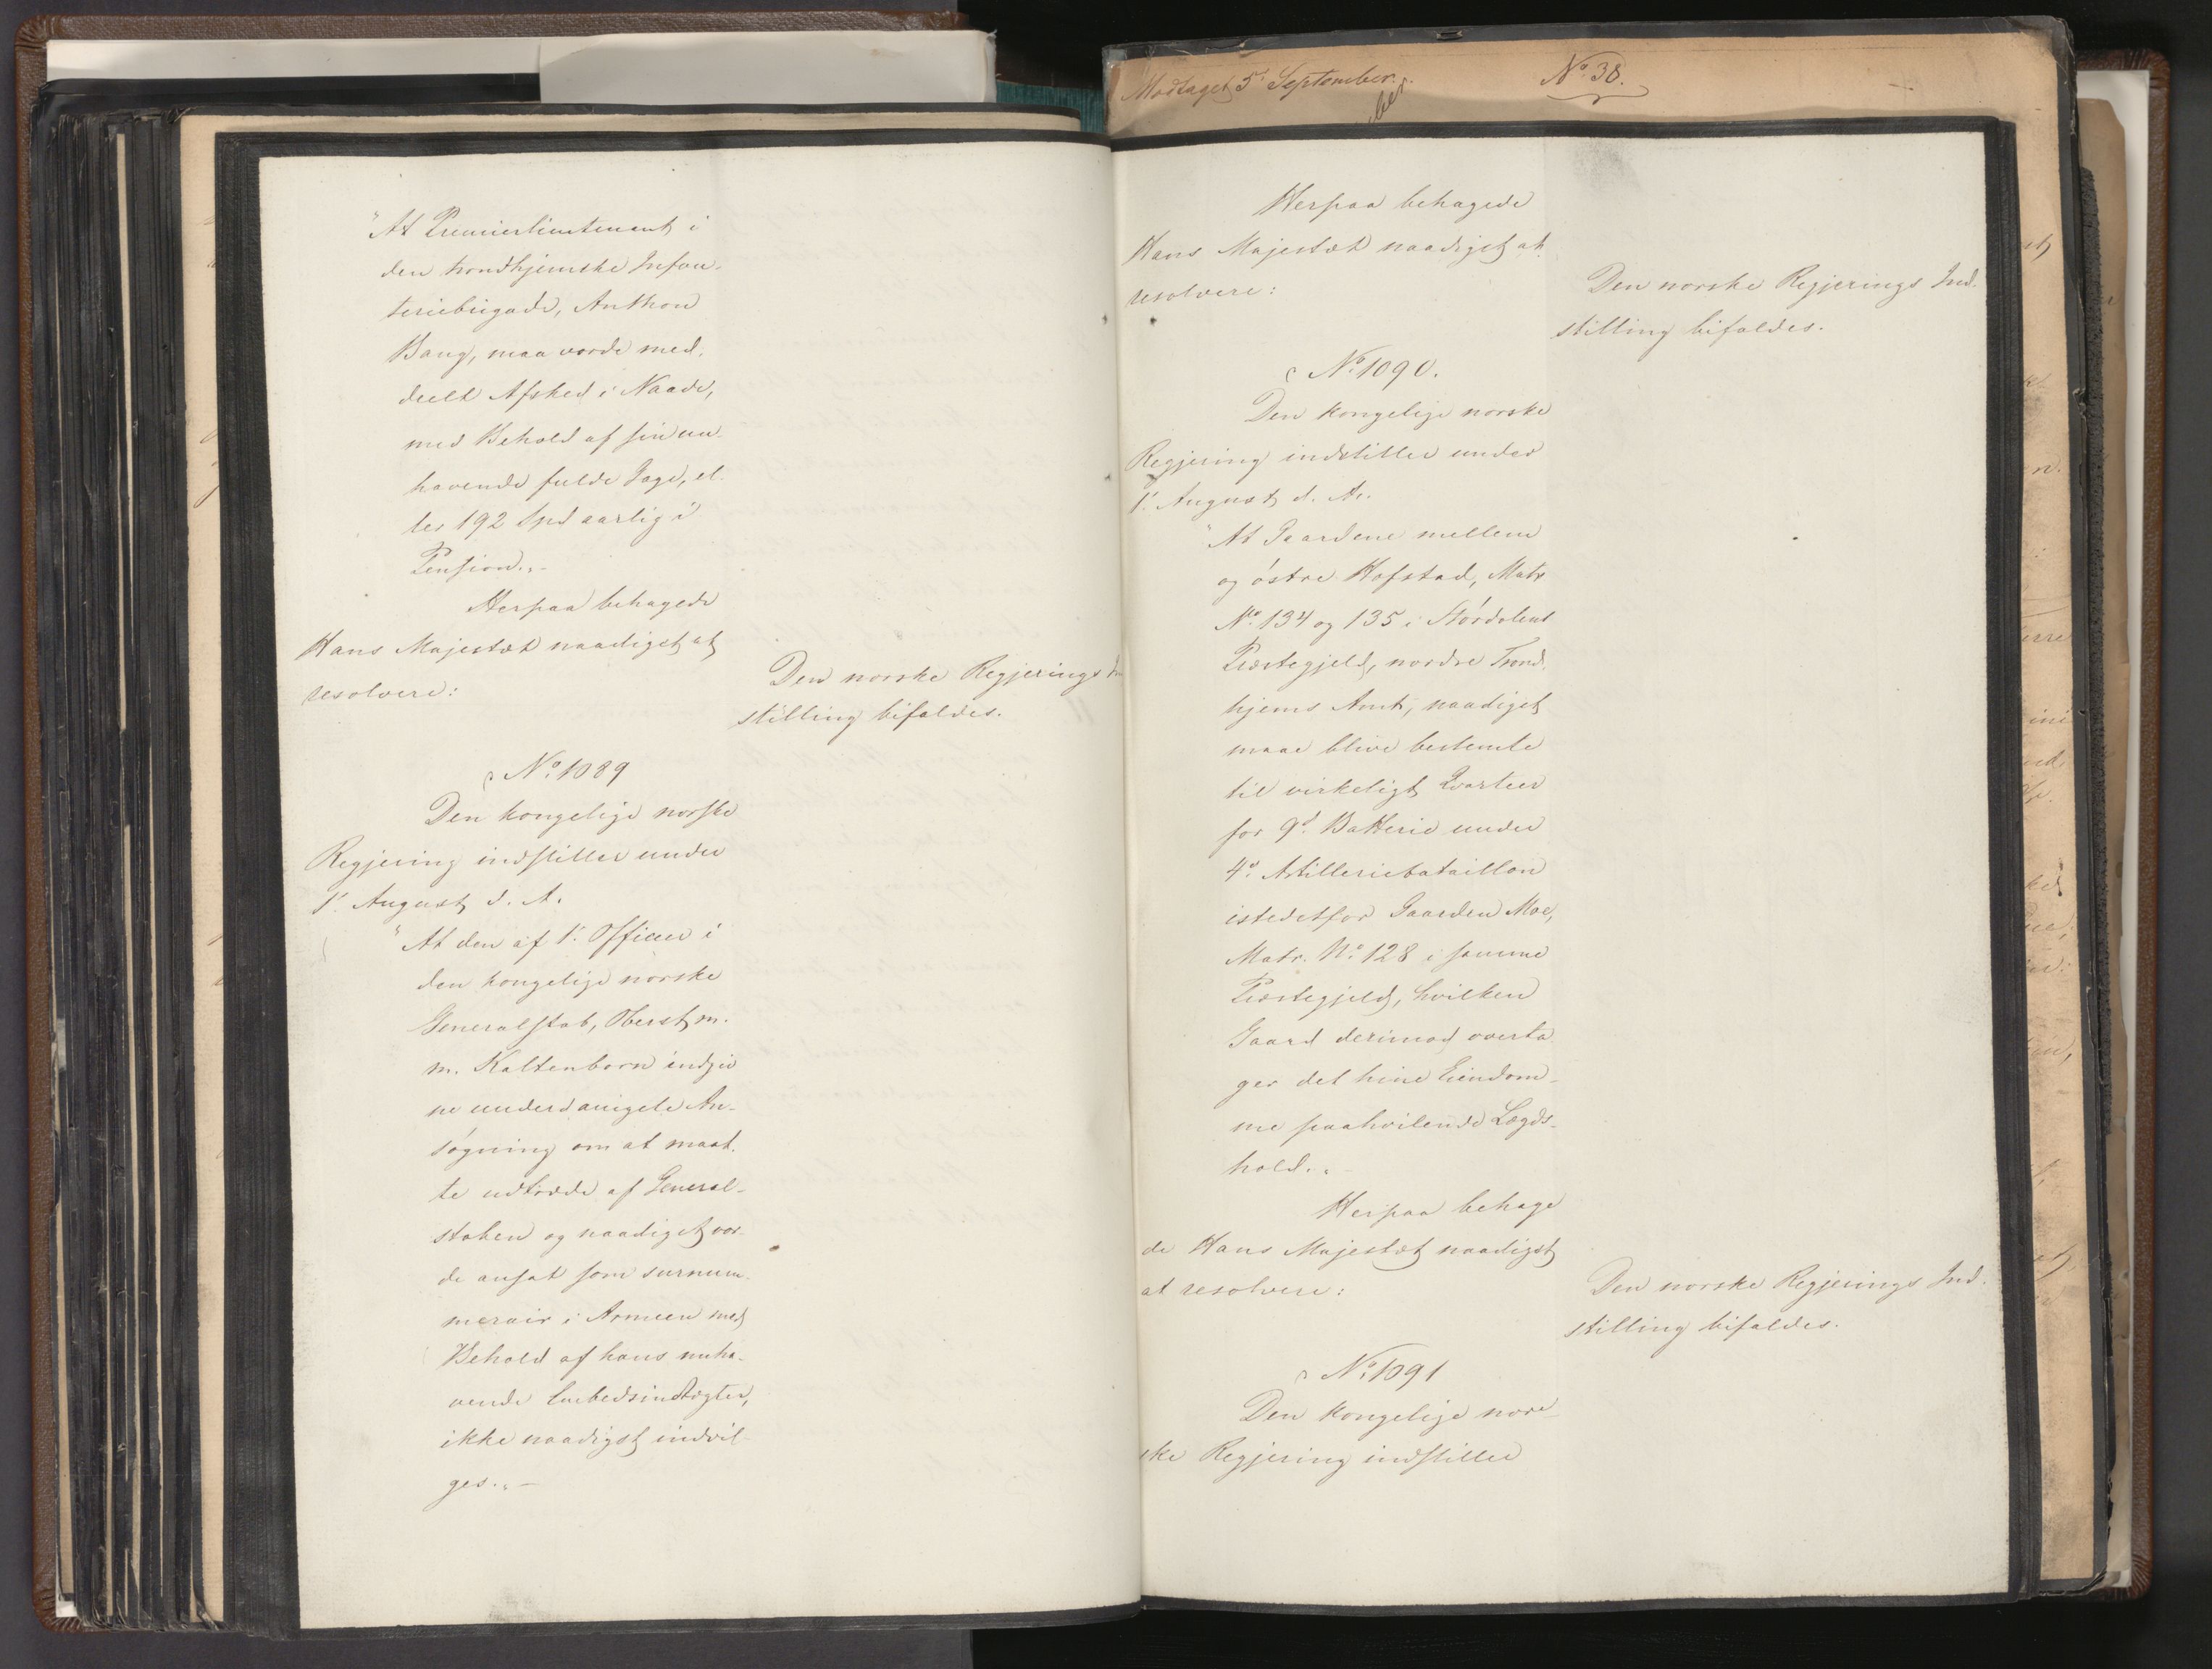 "At Premierlieutenant i
den trondhjemske Infan-
teriebrigade, Anthon
Bang, maa vorde med-
deelt Afsked i Naade,
med Behold af sin nu-
havende fulde Gage, el-
ler 192 Spd aarlig i
Pension."-
Herpaa behagede
Hans Majestæt naadigst at
resolvere:
Den norske Regjerings In
stilling bifaldes.
No. 1089
Den kongelige norske
Regjering indstiller under
1. August d. A.
"At den af 1. Officeer i
den kongelige norske
Generalstab, Oberst m.
m. Kaltenborn indgiv
ne underdanigste An-
søgning om at maat-
te udtræde af General-
staben og naadigst vor-
de ansat som surnum-
merair i Armeen med
Behold af hans nuha-
vende Embedsindtægter,
ikke naadigst indvil-
ges."-
Modtaget 5. September.
No. 38.
ber.
Herpaa behagede
Hans Majestæt naadigst at
resolvere:
Den norske Regjerings Ind-
stilling bifaldes.
No. 1090.
Den kongelige norske
Regjering indstiller under
1. August d. A.
"At Gaardene mellem
og østre Hofstad, Matr
No. 134 og 135 i Størdalens
Præstegjeld, nordre Trond-
hjems Amt, naadigst
maae blive bestemte
til virkeligt Qvarteer
for 9d. Batterie under
4d. Artilleriebataillon
istedetfor Gaarden Moe,
Matr. No. 128 i samme
Præstegjeld, hvilken
Gaard derimod overta
ger det hine Eiendom-
me paahvilende Lægds-
hold."-
Herpaa behage
de Hans Majestæt naadigst
at resolvere:
Den norske Regjerings Ind-
stilling bifaldes.
No. 1091
Den kongelige nor-
ske Regjering indstiller